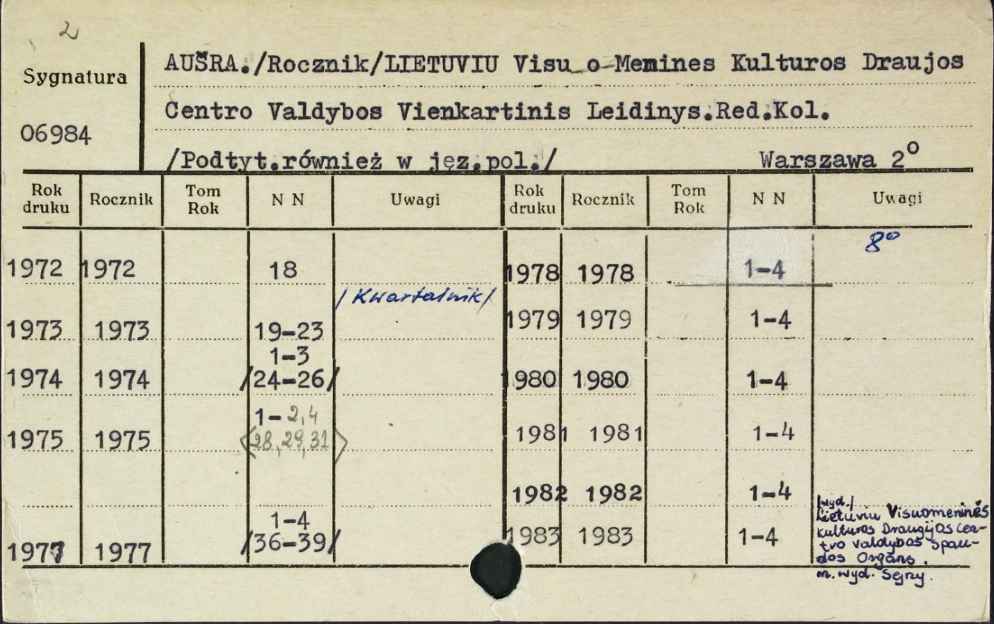 2
Sygnatura
06984
AUŠRA./Rocznik/LIETUVIU Visu o Menines Kulturos Draujos
Centro Valdybos Vienkartinis Leidinys.Red.Kol.
/Podtyt.również w jęz.pol./ Warszawa 2°
Rok druku Rocznik Tom Rok N N Uwagi Rok druku Rocznik Tom Rok N N Uwagi
8°
1972 1972 18 1978 1978 1-4
/Kwartalnik/
1973 1973 19-23 1979 1979 1-4
1-3
1974 1974 /24-26/ 1980 1980 1-4
1-2,4
1975 1975 <28,29,31> 1981 1981 1-4
1982 1982 1-4
1-4
1977 1977 /36-39/ 1983 1983 1-4
/wyd./
Lietuviu Visuomeninės
Kulturos Draugijos Cen-
tro Valdybos Spau-
dos Organs.
m. wyd. Sejny.